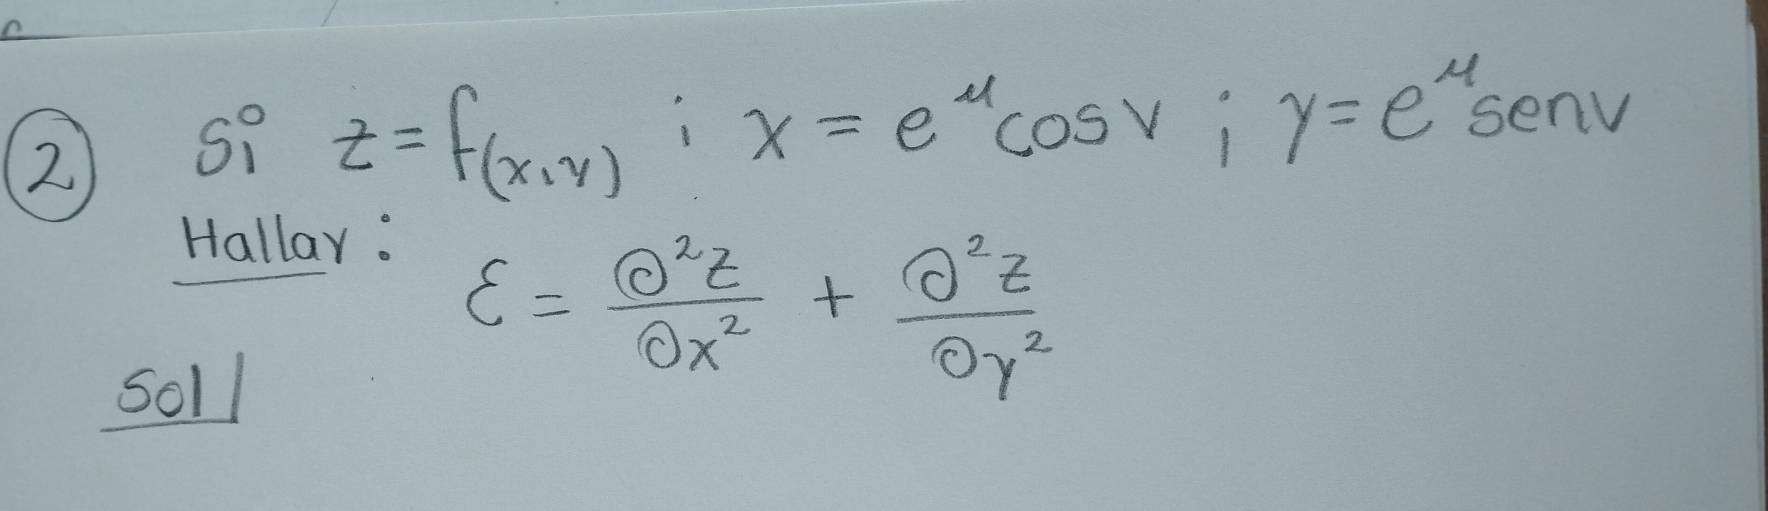 ② Si z = f(x,y) ; x = e^u cos v ; y = e^u sen v
Hallar:
ε = ∂²z/∂x² + ∂²z/∂y²
Sol